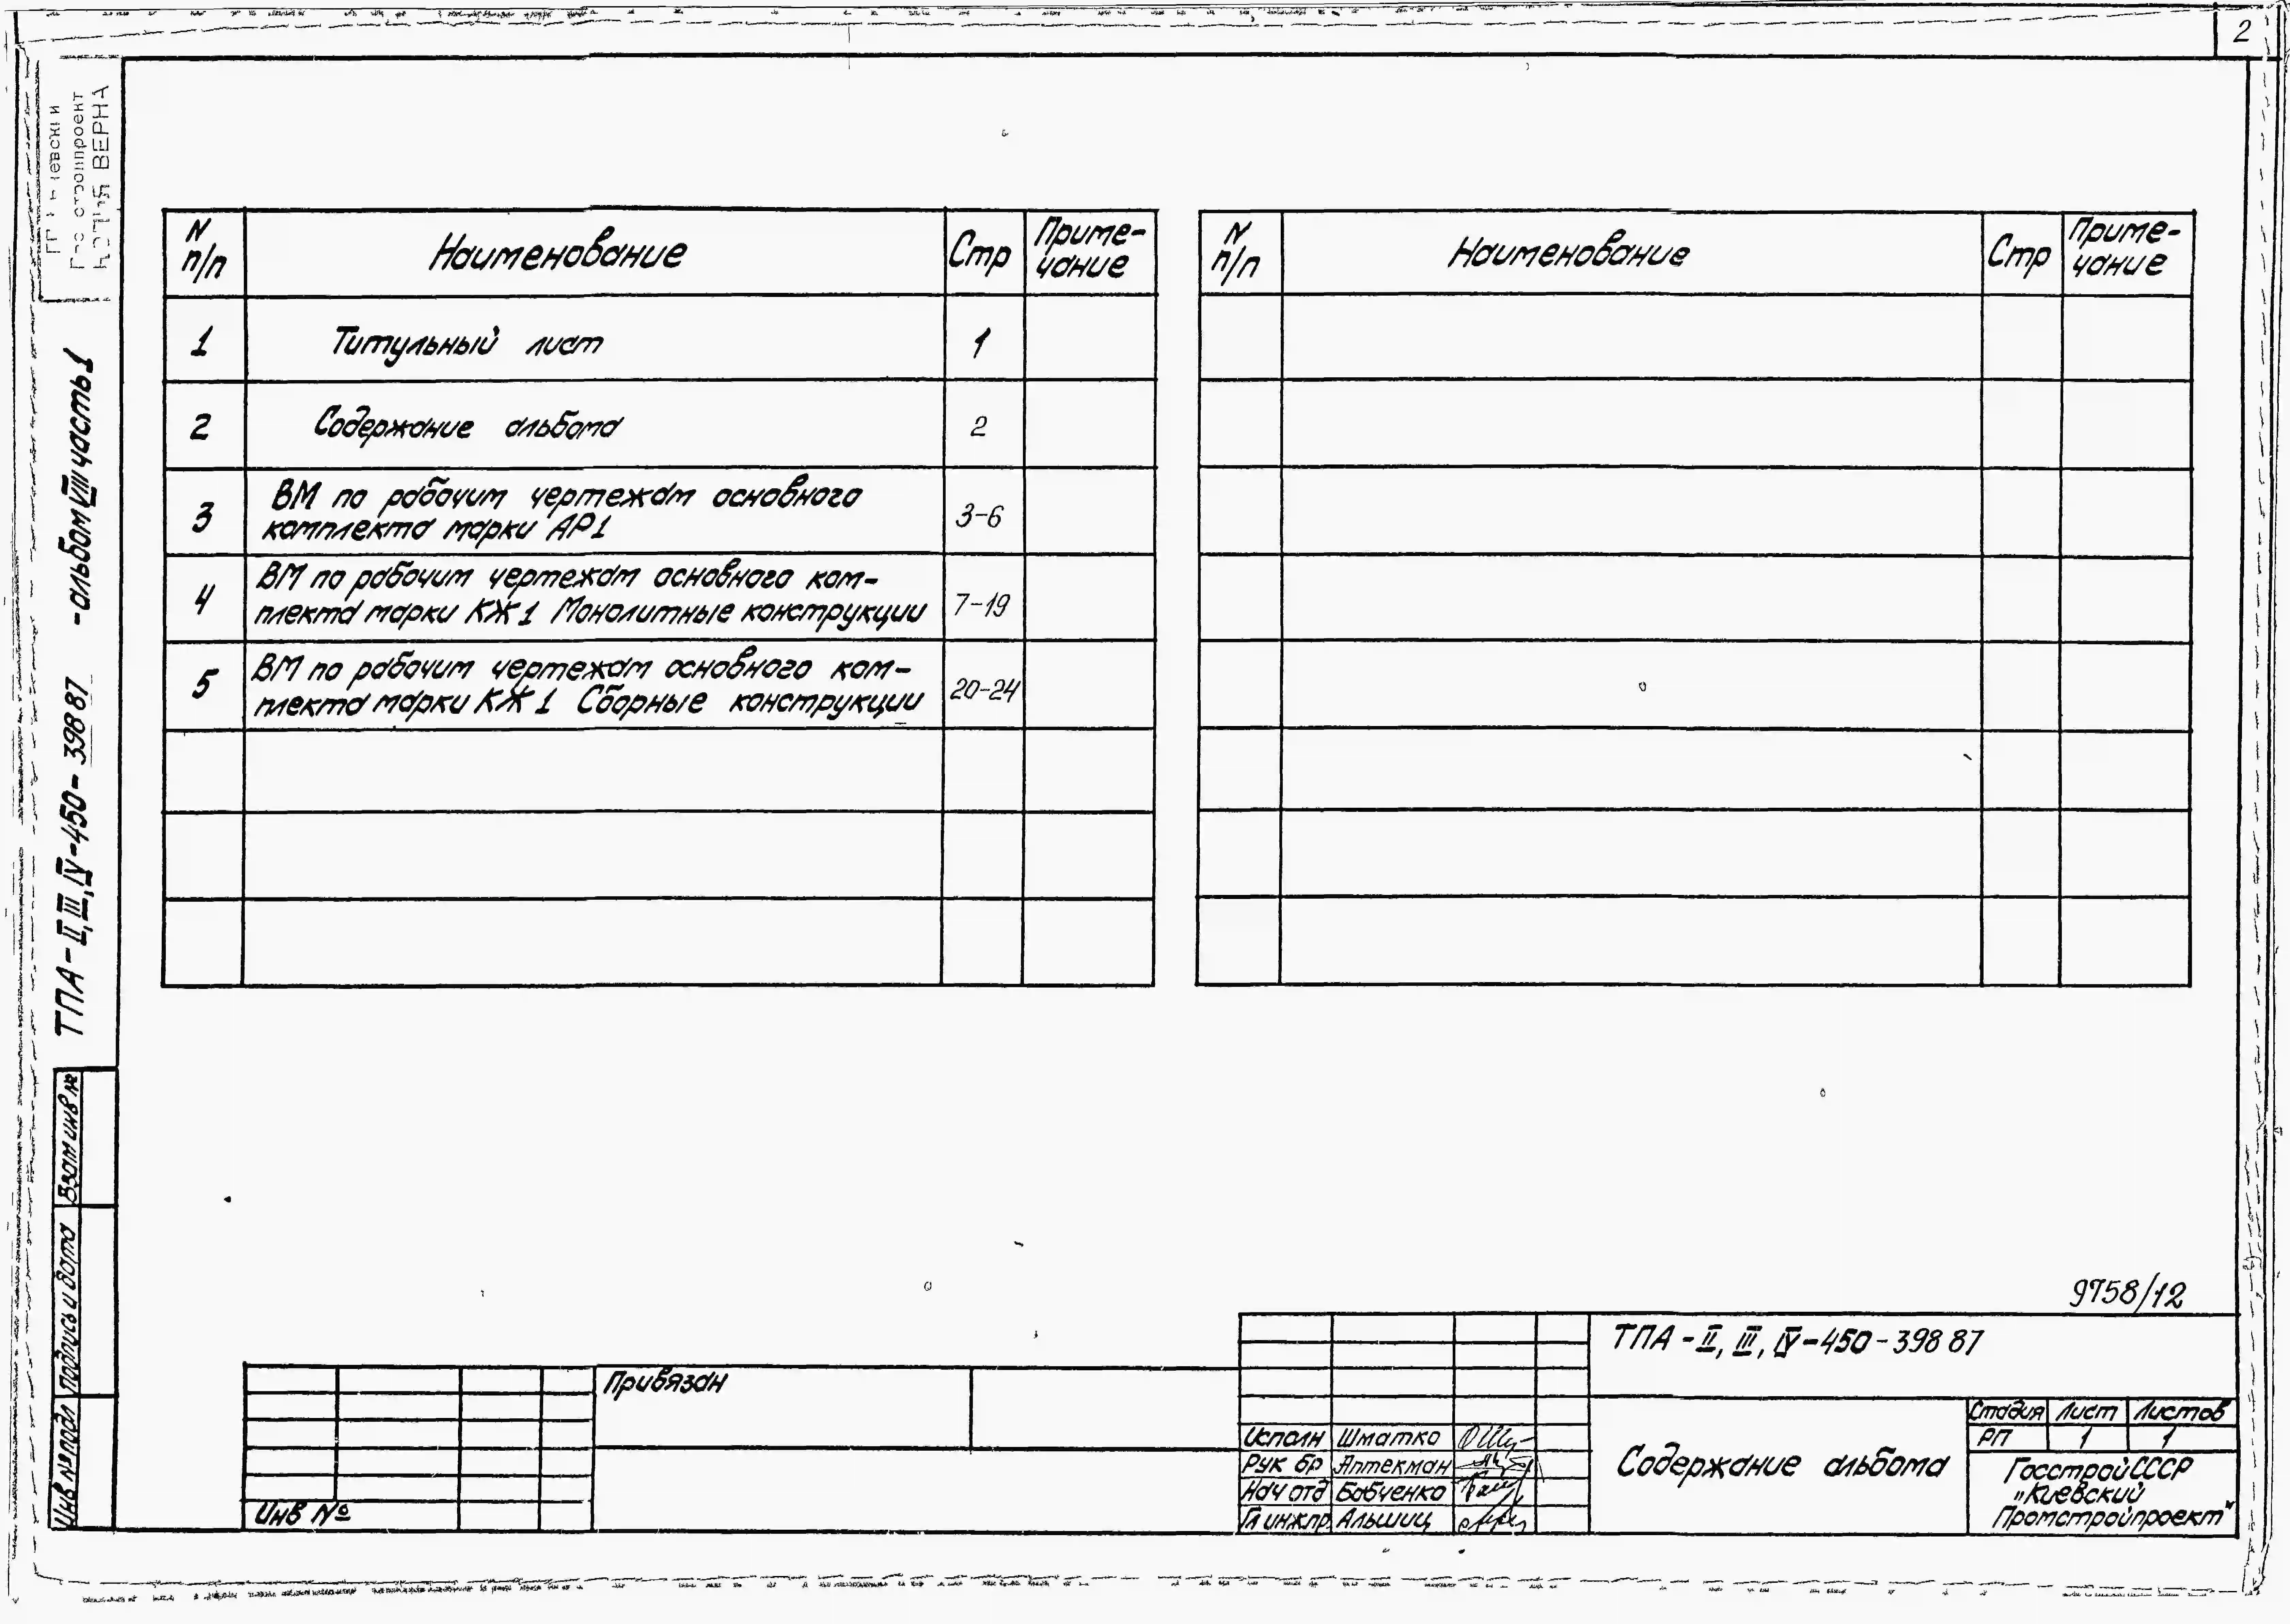 2
КОПИЯ ВЕРНА
N п/п
Наименование
Стр
Приме-
чание
1
Титульный лист
1
2
Содержание альбома
2
3
ВМ по рабочим чертежам основного
комплекта марки АР1
3-6
4
ВМ по рабочим чертежам основного ком-
плекта марки КЖ1 Монолитные конструкции
7-19
5
ВМ по рабочим чертежам основного ком-
плекта марки КЖ1 Сборные конструкции
20-24
N п/п
Наименование
Стр
Приме-
чание
ТПА-II, III, IV-450-398 87 -альбом VIII часть 1
Взам инв №
Подпись и дата
Инв № подл
9758/12
Привязан
Инв №
ТПА-II, III, IV-450-398 87
Исполн Шматко
Рук бр Аптекман
Нач отд Бабченко
Гл инж пр Альшиц
Содержание альбома
Стадия Лист Листов
РП 1 1
Госстрой СССР
„Киевский
Промстройпроект"